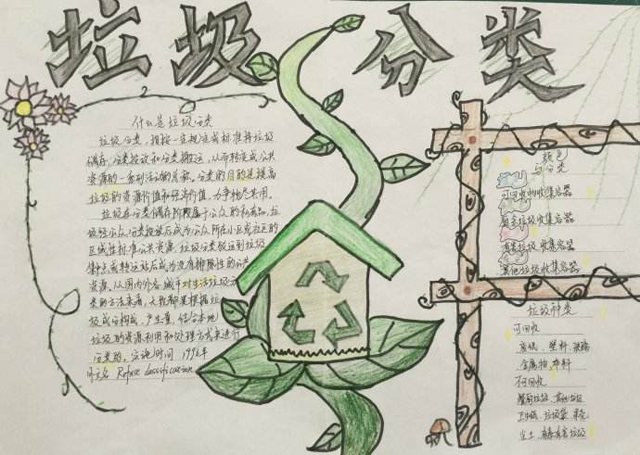 垃圾分类
什么是垃圾分类
垃圾分类，指按一定规定或标准将垃圾
储存、分类投放和分类搬运，从而转变成公共
资源的一系列活动的总称。分类的目的是提高
垃圾的资源价值和经济价值，力争物尽其用。
垃圾在分类储存阶段属于公众的私有品，垃
圾经公众分类投放后成为公众所在小区或社区的
区域性准公共资源，垃圾分类搬运到垃圾
集中点或转运站后成为没有排除性的公共
资源。从国内外各城市对生活垃圾分
类的方法来看，大致都是根据垃
圾成分构成、产生量，结合本地
垃圾的资源利用和处理方式来进行
分类的。实施时间 1996年
外文名 Refuse classification
颜色
与分类
可回收物收集容器
厨余垃圾收集容器
有害垃圾收集容器
其他垃圾收集容器
垃圾种类
可回收
塑料
金属物 布料
不可回收
卫生纸
尘土